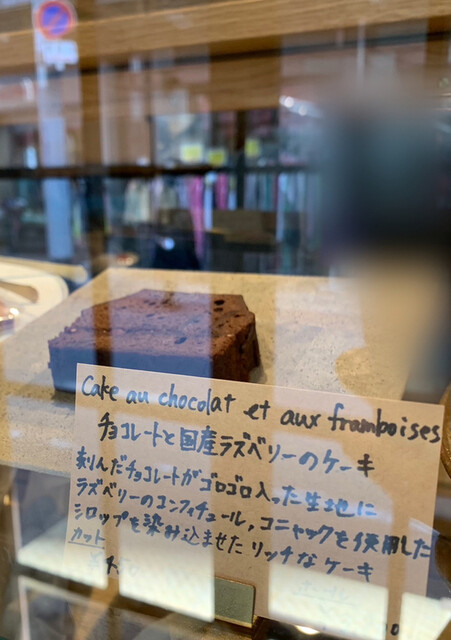 Cake au chocolat et aux framboises
チョコレートと国産ラズベリーのケーキ
刻んだチョコレートがゴロゴロ入った生地に
ラズベリーのコンフィチュール,コニャックを使用した
シロップを染み込ませたリッチなケーキ
カット